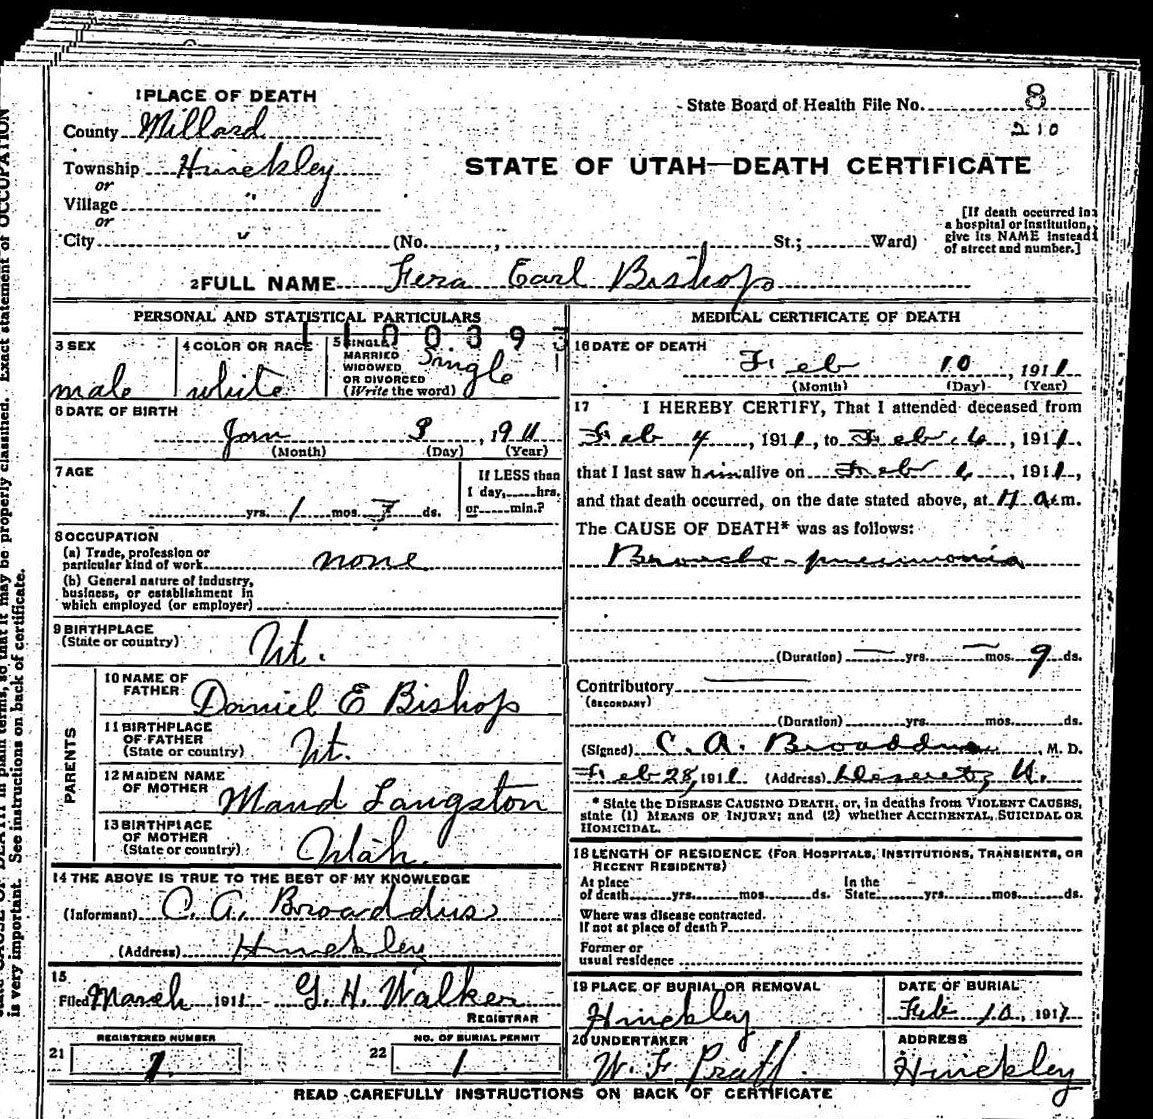 1 PLACE OF DEATH
State Board of Health File No. 8
210
County Millard
Township Hinckley
or
Village "
or
City "
STATE OF UTAH—DEATH CERTIFICATE
(No. , St.; Ward)
[If death occurred in a hospital or institution, give its NAME instead of street and number.]
2 FULL NAME Fera Earl Bishop
PERSONAL AND STATISTICAL PARTICULARS
110039
3 SEX
male
4 COLOR OR RACE
white
5 SINGLE, MARRIED WIDOWED OR DIVORCED (Write the word)
Single
6 DATE OF BIRTH
Jan 3, 1911
(Month) (Day) (Year)
7 AGE
yrs. 1 mos. 7 ds.
If LESS than
1 day, hrs.
or min.?
8 OCCUPATION
(a) Trade, profession or
particular kind of work none
(b) General nature of industry,
business, or establishment in
which employed (or employer)
9 BIRTHPLACE
(State or country) Ut.
PARENTS
10 NAME OF
FATHER Daniel E Bishop
11 BIRTHPLACE
OF FATHER
(State or country) Ut.
12 MAIDEN NAME
OF MOTHER Maud Langston
13 BIRTHPLACE
OF MOTHER
(State or country) Utah.
14 THE ABOVE IS TRUE TO THE BEST OF MY KNOWLEDGE
(Informant) C. A. Broaddus
(Address) Hinckley
15
Filed March 1911 G. H. Walker
REGISTRAR
REGISTERED NUMBER
21 7.
NO. OF BURIAL PERMIT
22 1
MEDICAL CERTIFICATE OF DEATH
16 DATE OF DEATH
Feb 10, 1911
(Month) (Day) (Year)
17 I HEREBY CERTIFY, That I attended deceased from
Feb 4, 1911, to Feb 6, 1911,
that I last saw him alive on Feb 6, 1911,
and that death occurred, on the date stated above, at a.m.
The CAUSE OF DEATH* was as follows:
Broncho-pneumonia
(Duration) — yrs. — mos. 9 ds.
Contributory
(SECONDARY)
(Duration) yrs. mos. ds.
(Signed) C. A. Broaddus, M. D.
Feb 28, 1911 (Address) Deseret, U.
* State the DISEASE CAUSING DEATH, or, in deaths from VIOLENT CAUSES,
state (1) MEANS OF INJURY; and (2) whether ACCIDENTAL, SUICIDAL OR
HOMICIDAL.
18 LENGTH OF RESIDENCE (FOR HOSPITALS, INSTITUTIONS, TRANSIENTS, OR
RECENT RESIDENTS)
At place In the
of death yrs. mos. ds. State yrs. mos. ds.
Where was disease contracted.
If not at place of death?
Former or
usual residence
19 PLACE OF BURIAL OR REMOVAL
Hinckley
DATE OF BURIAL
Feb 10, 1911
20 UNDERTAKER
W. F Pratt.
ADDRESS
Hinckley
READ CAREFULLY INSTRUCTIONS ON BACK OF CERTIFICATE
so that it may be properly classified. Exact statement of OCCUPATION
is very important. See instructions on back of certificate.